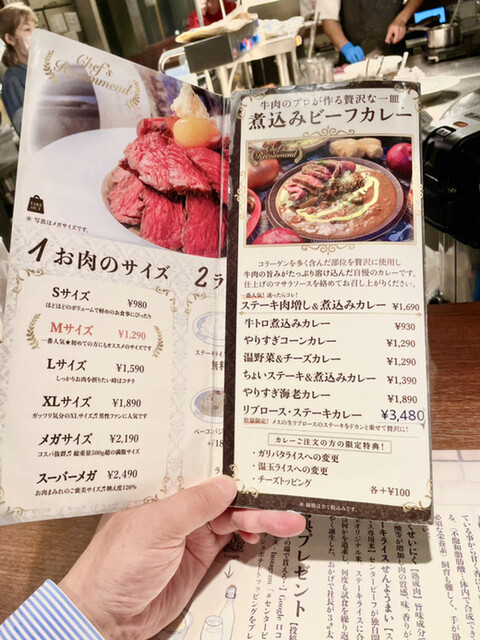 Chef's
Recommend
TAKE OUT
※ 写真はメガサイズです。
1 お肉のサイズ
Sサイズ ¥980
ほどほどのボリュームで軽めのお食事にぴったり
Mサイズ ¥1,290
一番人気★初めての方にもオススメのサイズです
Lサイズ ¥1,590
しっかりお肉を摂りたい時はコチラ
XLサイズ ¥1,890
ガッツリ気分のXLサイズ♬男性ファンに人気です
メガサイズ ¥2,190
コスパ抜群♬総重量500g超の満腹サイズ
スーパーメガ ¥2,490
お肉まみれのご褒美サイズ♬映え度120%
2 ラ
ステーキライ
無料
ベーコンバジ
牛肉のプロが作る贅沢な一皿
煮込みビーフカレー
Chef's
Recommend
コラーゲンを多く含んだ部位を贅沢に使用し
牛肉の旨みがたっぷり溶け込んだ自慢のカレーです。
仕上げのマサラソースを絡めてお召し上がりください。
一番人気!迷ったらコレ!
ステーキ肉増し&煮込みカレー ¥1,690
牛トロ煮込みカレー ¥930
やりすぎコーンカレー ¥1,290
温野菜&チーズカレー ¥1,290
ちょいステーキ&煮込みカレー ¥1,390
やりすぎ海老カレー ¥1,890
リブロース・ステーキカレー ¥3,480
数量限定!メスの生リブロースのステーキをドカンと乗せて贅沢に!
カレーご注文の方の限定特典!
・ガリバタライスへの変更
・温玉ライスへの変更
・チーズトッピング
各+¥100
※ 価格は全て税込みです。
プレゼント